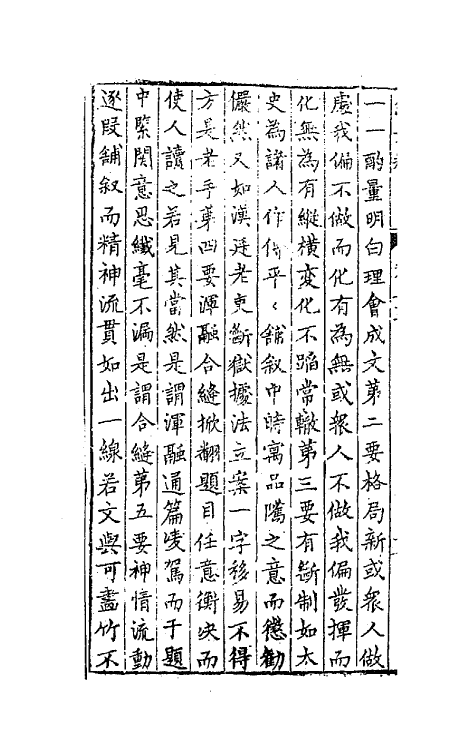 一一酌量明白理會成文第二要格局新或衆人做
處我偏不做而化有為無或衆人不做我偏發揮而
化無為有縱橫变化不蹈常轍第三要有斷制如太
史為諸人作傳平〻舖叙中時寓品隲之意而懲勸
儼然又如漢廷老吏斷獄據法立案一字移易不得
方是老手第四要渾融合縫掀翻題目任意衡决而
使人讀之若見其當然是謂渾融通篇凌駕而于題
中緊関意思纎毫不漏是謂合縫第五要神情流動
逐段舖叙而精神流貫如出一線若文與可畫竹不